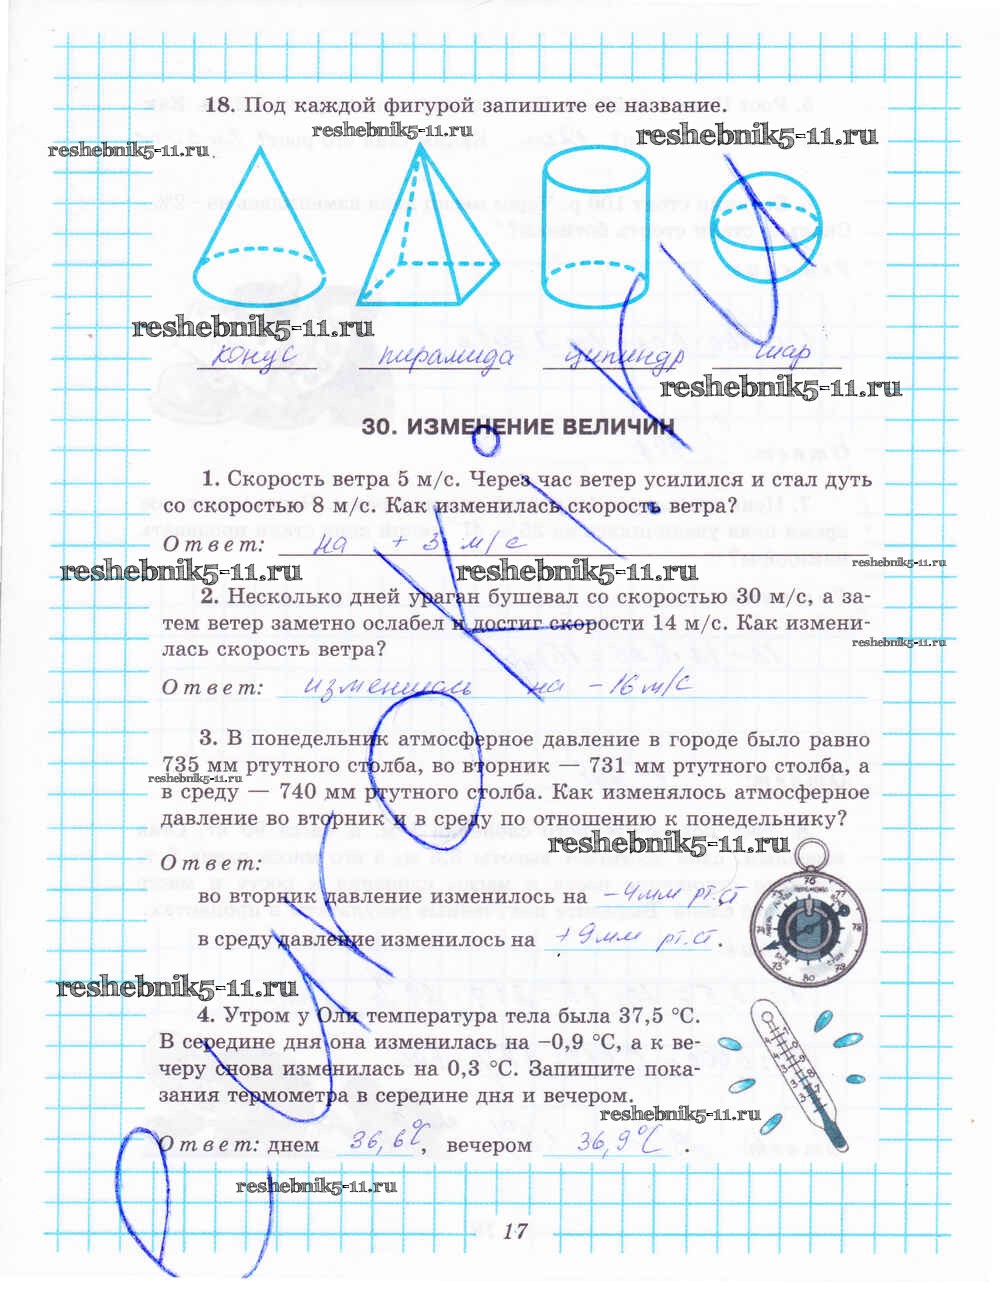 18. Под каждой фигурой запишите ее название.
reshebnik5-11.ru
reshebnik5-11.ru
reshebnik5-11.ru
reshebnik5-11.ru
конус пирамида цилиндр шар
reshebnik5-11.ru
30. ИЗМЕНЕНИЕ ВЕЛИЧИН
1. Скорость ветра 5 м/с. Через час ветер усилился и стал дуть
со скоростью 8 м/с. Как изменилась скорость ветра?
Ответ: на + 3 м/с
reshebnik5-11.ru reshebnik5-11.ru reshebnik5-11.ru
2. Несколько дней ураган бушевал со скоростью 30 м/с, а за-
тем ветер заметно ослабел и достиг скорости 14 м/с. Как измени-
лась скорость ветра?
reshebnik5-11.ru
Ответ: изменилась на – 16 м/с
3. В понедельник атмосферное давление в городе было равно
735 мм ртутного столба, во вторник — 731 мм ртутного столба, а
reshebnik5-11.ru
в среду — 740 мм ртутного столба. Как изменялось атмосферное
давление во вторник и в среду по отношению к понедельнику?
reshebnik5-11.ru
Ответ:
во вторник давление изменилось на – 4 мм рт.ст
в среду давление изменилось на + 9 мм рт.ст .
reshebnik5-11.ru
4. Утром у Оли температура тела была 37,5 °С.
В середине дня она изменилась на –0,9 °С, а к ве-
черу снова изменилась на 0,3 °С. Запишите пока-
зания термометра в середине дня и вечером.
reshebnik5-11.ru
Ответ: днем 36,6°С, вечером 36,9°С .
reshebnik5-11.ru
17